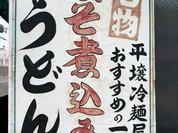 名物
平壌冷麺屋
おすすめの一
みそ煮込み
うどん